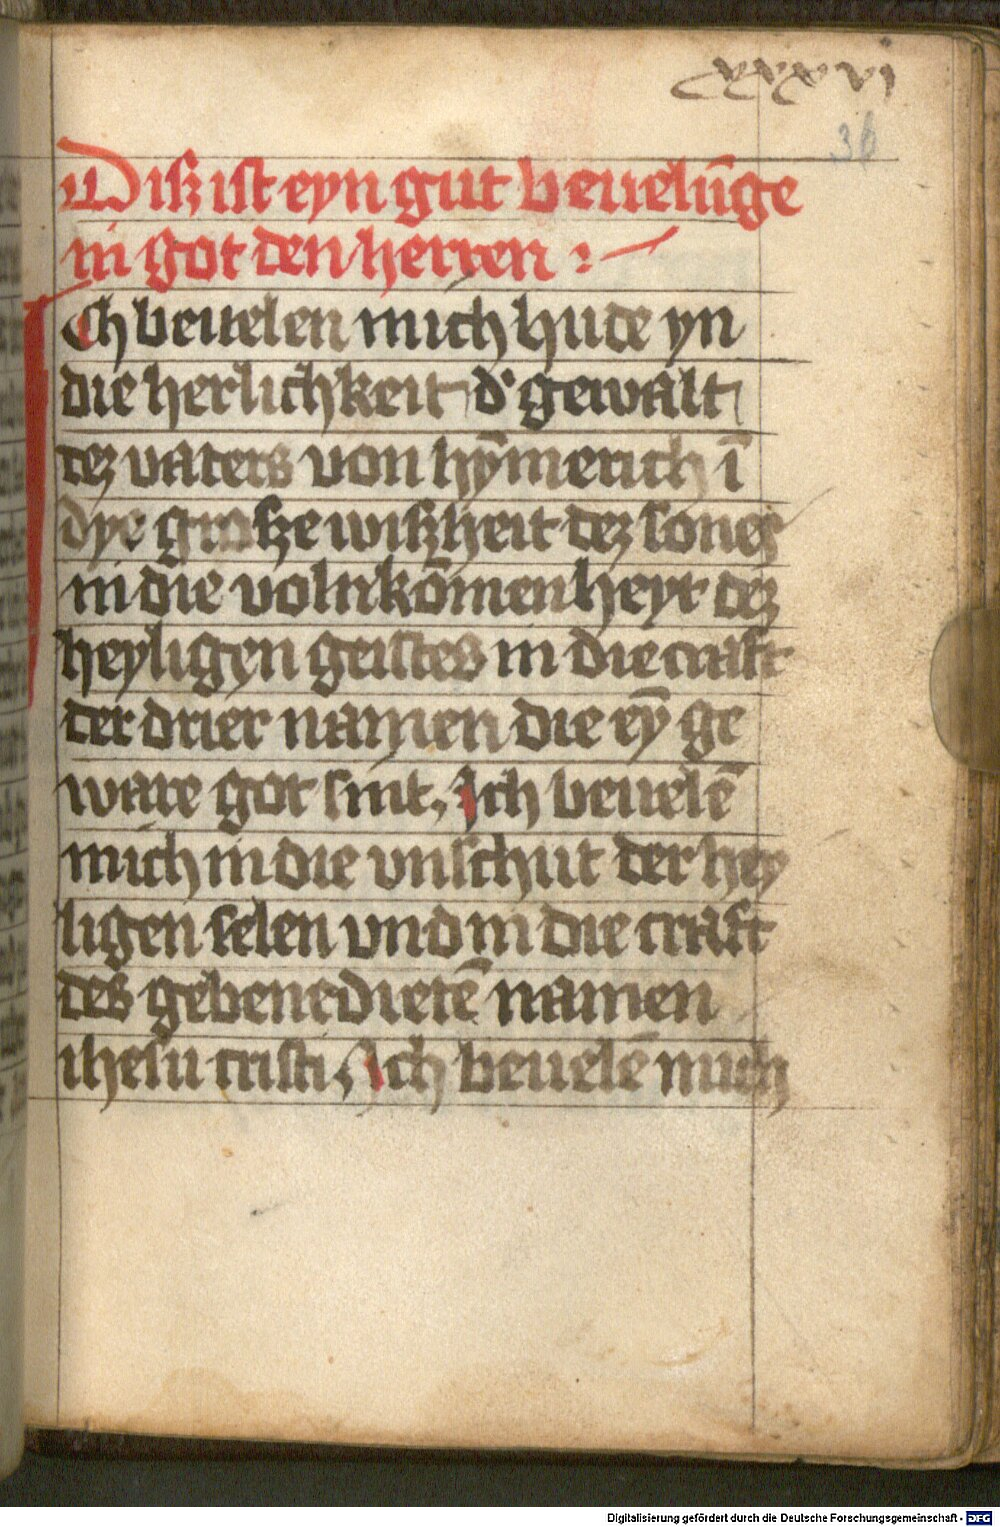 xxxvi
36
Disz ist eyn gut beuelūge
in got den herren :
Ich beuelen mich hude yn
die herlichkeit d' gewalt
dez vaters von hȳmerich ī
dye grosze wiszheit dez sones
in die volnkōmenheyt dez
heyligen geistes in die craft
der drier namen die eȳ ge
ware got sint, Ich beuelē
mich in die vnschult der hey
ligen selen vnd in die craft
des gebenedietē namen
ihesu cristi, Ich beuelē mich
Digitalisierung gefördert durch die Deutsche Forschungsgemeinschaft - DFG